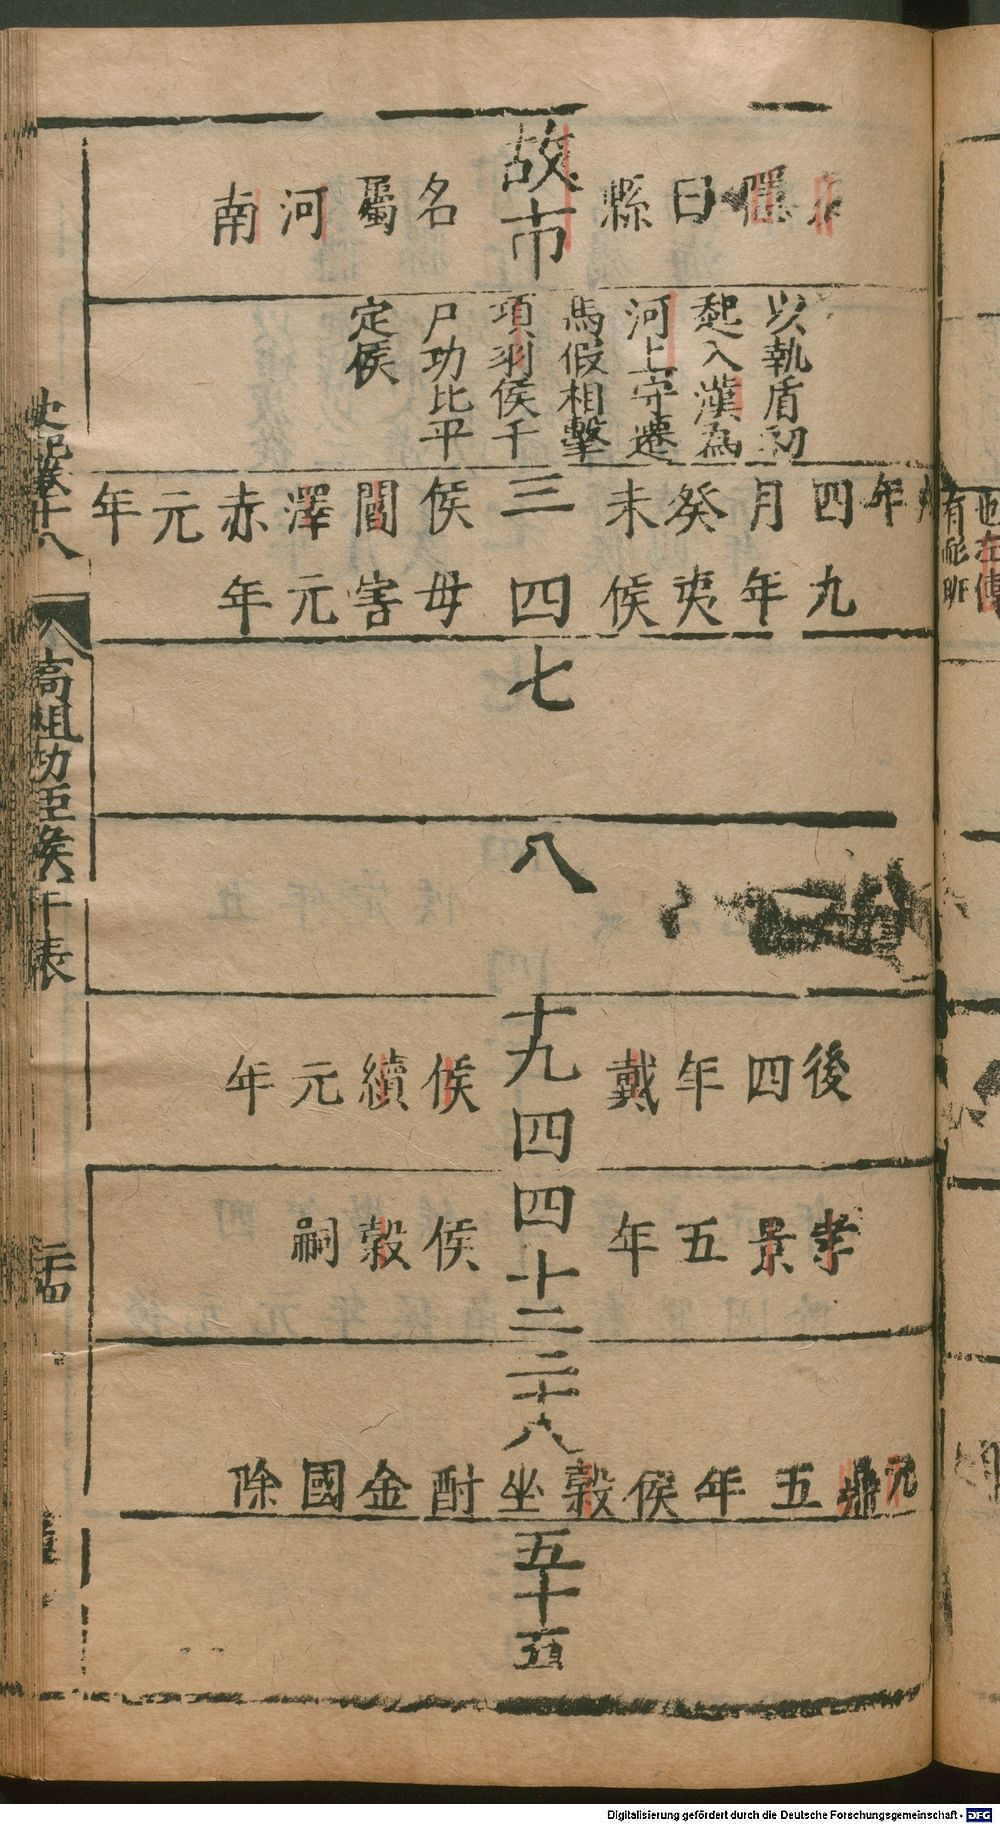 也左傳
有耏班
隱曰縣
故市
名屬河南
以執盾初
起入漢為
河上守遷
馬假相擊
項羽侯千
尸功比平
定侯
年四月癸未
三
侯閻澤赤元年
九年夷侯
四
毋害元年
七
八
十九
後四年戴
四
侯續元年
四
孝景五年
十二
侯穀嗣
二十八
元鼎五年侯穀坐酎金國除
五十五
史記卷十八
高祖功臣侯年表
二十四
Digitalisierung gefördert durch die Deutsche Forschungsgemeinschaft - DFG